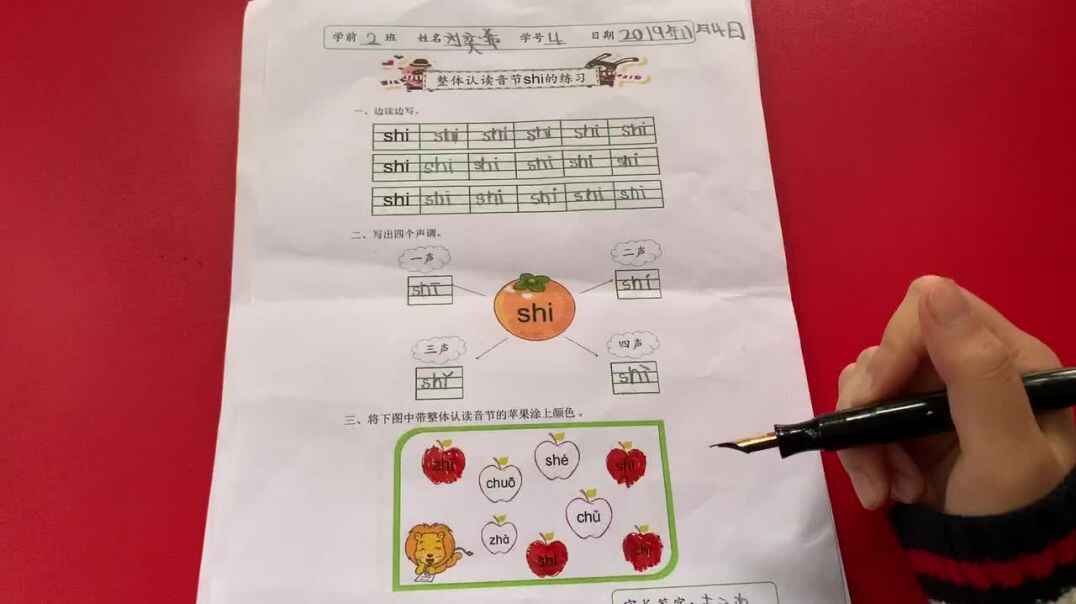 学前 2 班 姓名 刘奕 学号 4 日期 2019年11月4日
整体认读音节shi的练习
一、边读边写。
shi shi shi shi shi shi
shi shi shi shi shi shi
shi shi shi shi shi shi
二、写出四个声调。
一声 二声
shī shí
shi
三声 四声
shǐ shì
三、将下图中带整体认读音节的苹果涂上颜色。
zhi shé shi
chuō
chū
zhà shi chi
家长签字: